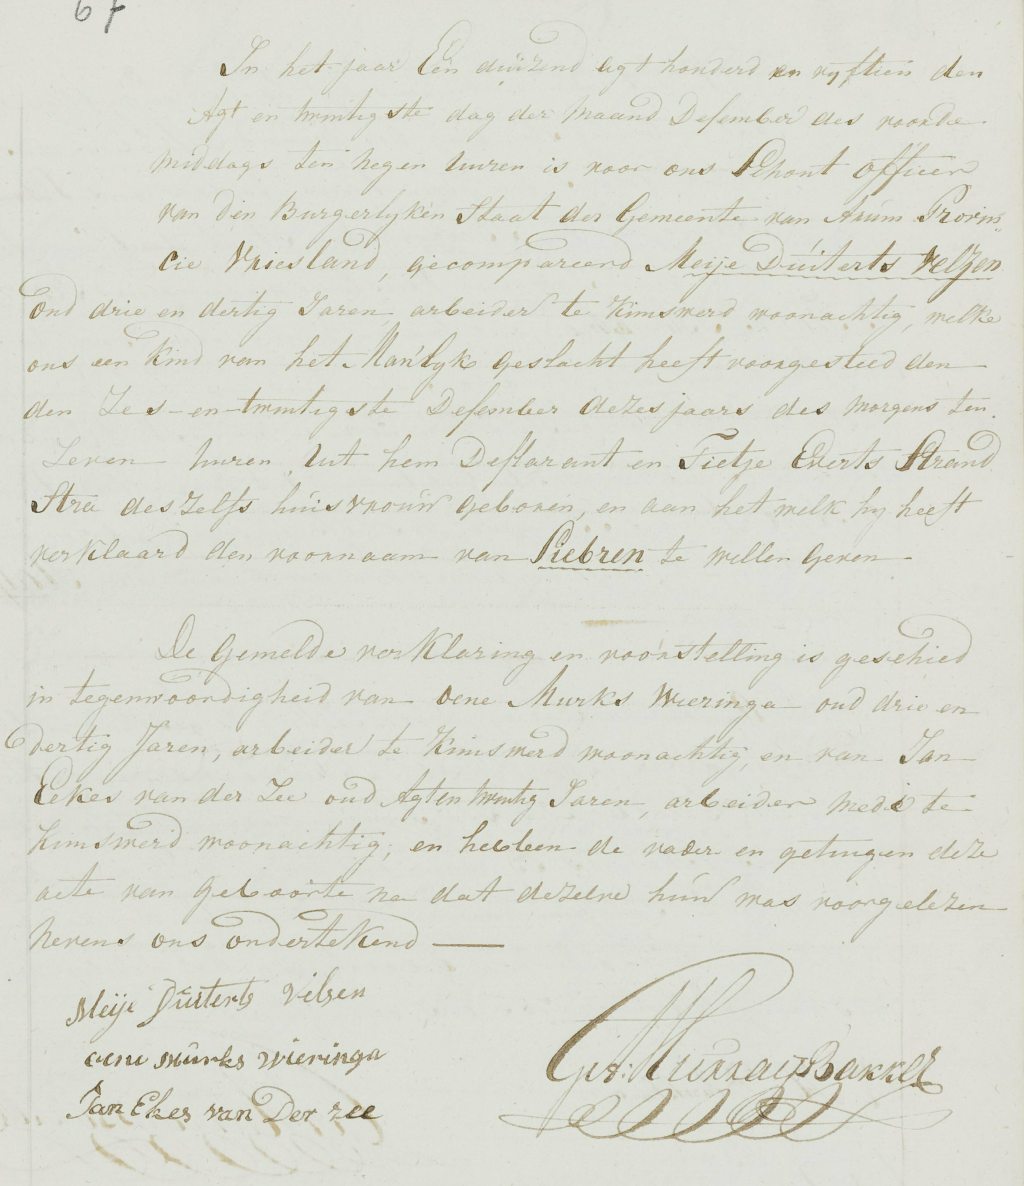 67
In het jaar Een duizend agt honderd en vyftien den
Agt en twintigste dag der maand Desember des voorde
middags ten negen uuren is voor ons Schout officier
van den Burgerlyken Staat der Gemeente van Arum Provin-
cie Vriesland, gecompareerd Meije Duiterts Velzen
oud drie en dertig Jaren arbeider te Kimswerd woonachtig, welke
ons een Kind van het Man'lyk geslacht heeft voorgesteld den
den Zes-en-twintigste Desember dezes jaars des morgens ten
Zeven uuren uit hem Deklarant en Tietje Everts Strand
Stra deszelfs huisvrouw geboren, en aan het welk hy heeft
verklaard den voornaam van Siebren te willen geven
De Gemelde verklaring en voorstelling is geschied
in tegenwoordigheid van oene Murks Wieringa oud drie en
dertig Jaren, arbeider te Kimswerd woonachtig, en van Jan
Eekes van der Zee oud Agt en twintig Jaren, arbeider mede te
Kimswerd woonachtig, en hebben de vader en getuigen deze
acte van geboorte na dat dezelve hun was voorgelezen
nevens ons ondertekend
Meije Duiterts Velsen
oene murks wieringa
Jan Ekes van Der zee
Bakker